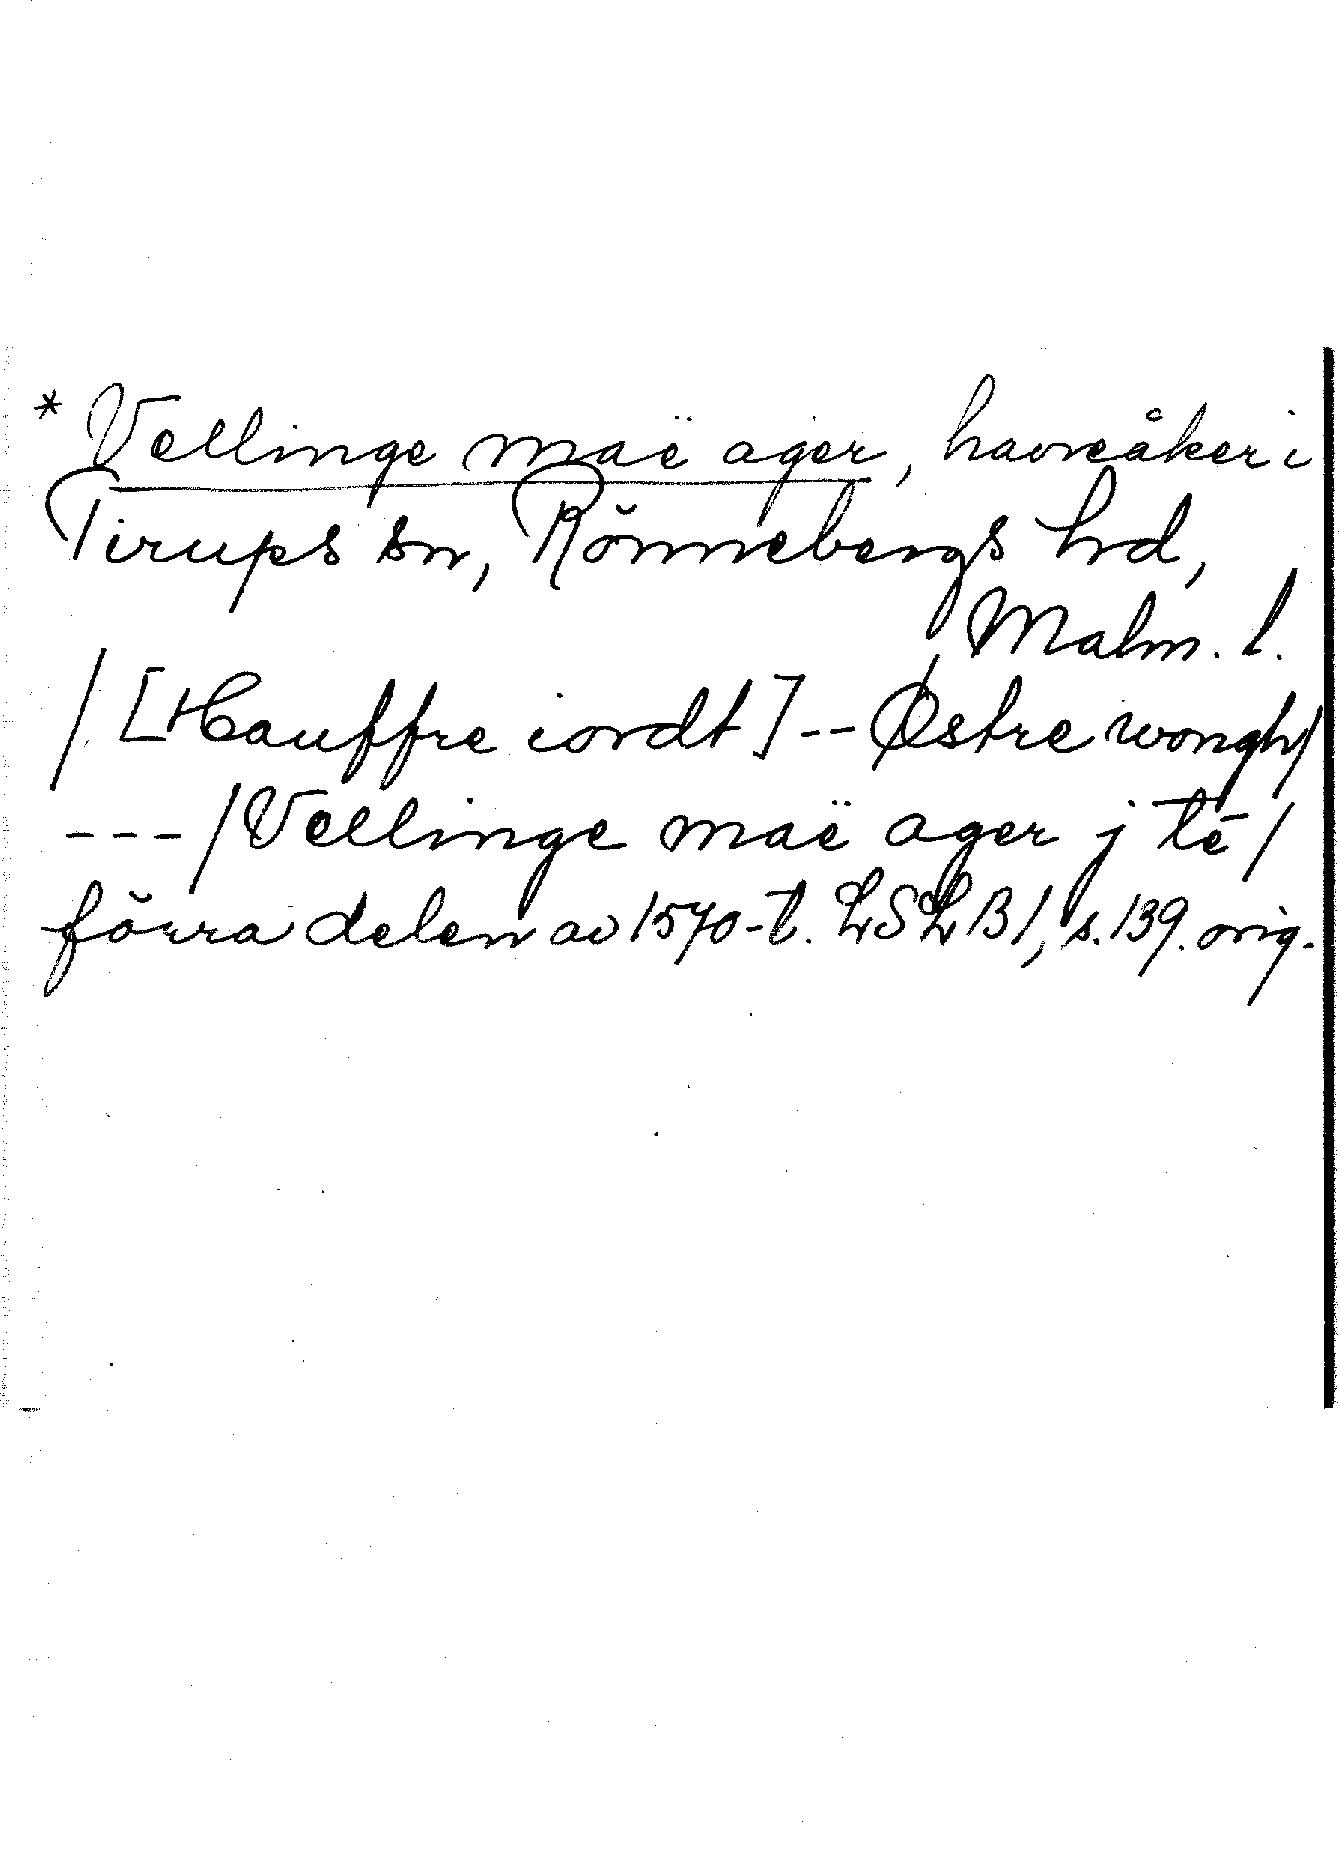 * Vellinge maë ager, havreåker i
Tirups sn, Rönnebergs hd,
Malm. l.
/ [Hauffre iordt] -- Østre wongh/
--- / Vellinge maë ager j tē /
förra delen av 1570-t. LSLB 1, s. 139. orig.